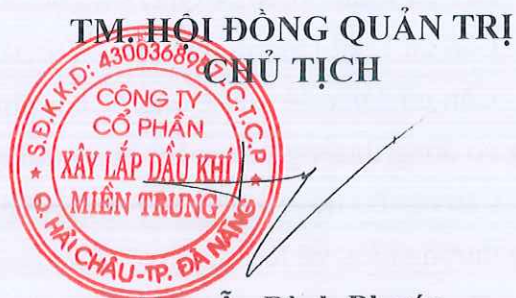 TM. HỘI ĐỒNG QUẢN TRỊ
CHỦ TỊCH
S.Đ.K.K.D: 4300368 C.T.C.P
CÔNG TY
CỔ PHẦN
XÂY LẮP DẦU KHÍ
MIỀN TRUNG
Q. HẢI CHÂU-TP. ĐÀ NẴNG